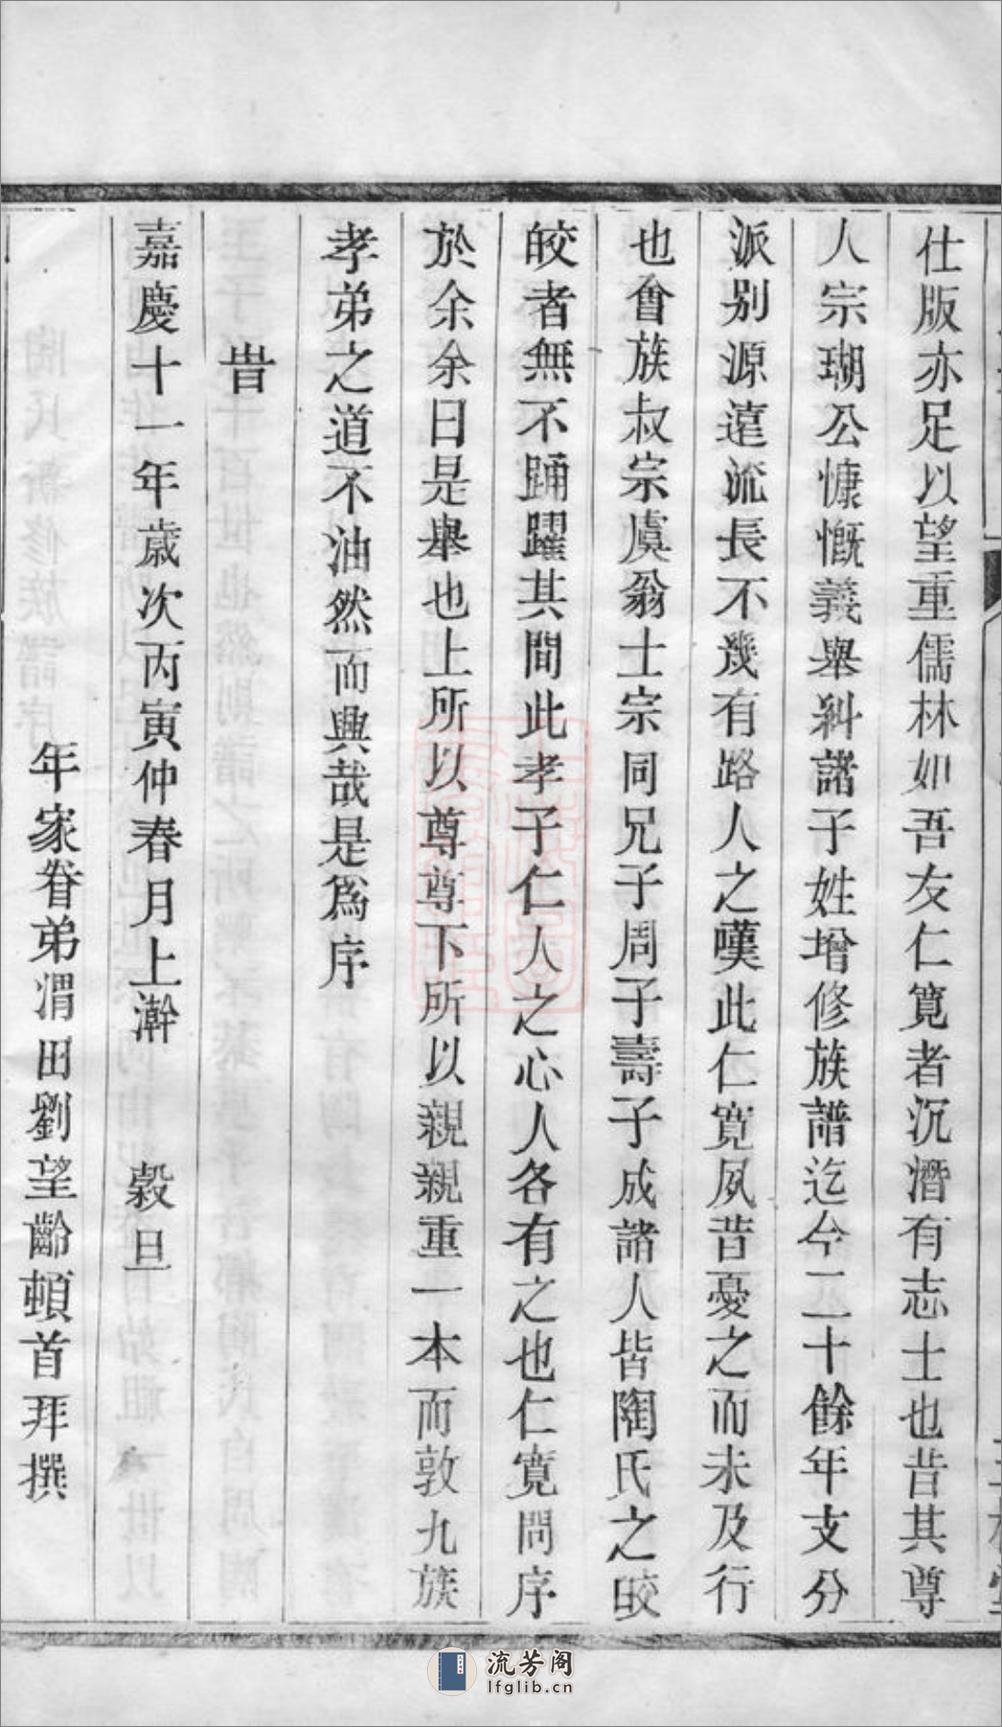 仕版亦足以望重儒林如吾友仁寬者沉潛有志士也昔其尊
人宗瑚公慷慨義舉糾諸子姓增修族譜迄今二十餘年支分
派别源遠流長不幾有路人之嘆此仁寬夙昔憂之而未及行
也會族叔宗虞翁士宗同兄子周子壽子成諸人皆陶氏之皎
皎者無不踊躍其間此孝子仁人之心人各有之也仁寬問序
於余余曰是舉也上所以尊尊下所以親親重一本而敦九族
孝弟之道不油然而興哉是爲序
旹
嘉慶十一年歲次丙寅仲春月上澣 穀旦
年家眷弟渭田劉望齡頓首拜撰
流芳阁
lfglib.cn